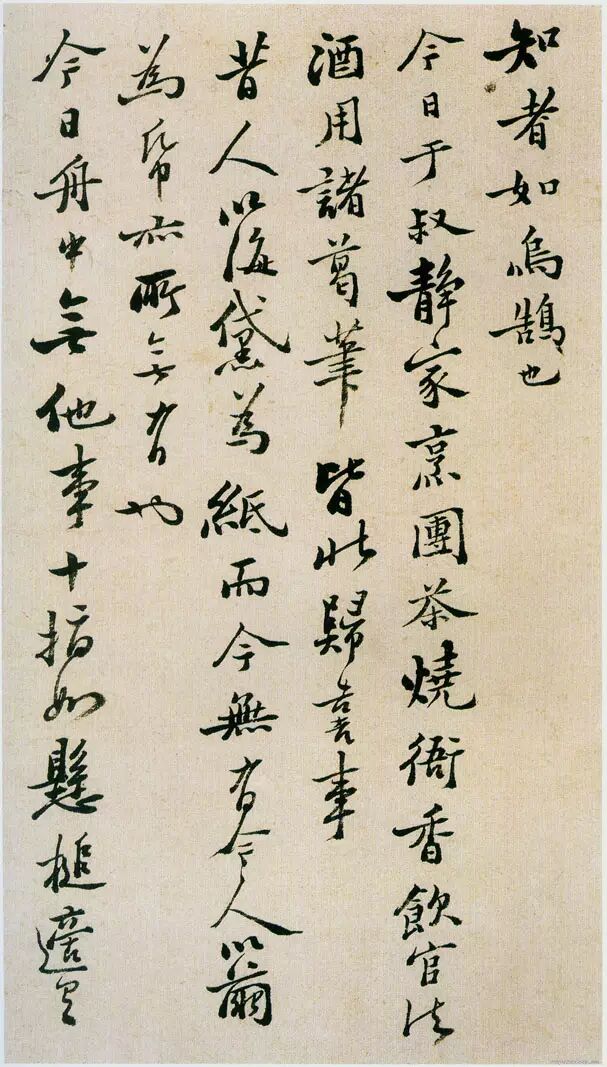 知者如鳴鵠也
今日于叔靜家烹團茶燒衙香飲官法
酒用諸葛筆皆北歸喜事
昔人以海黛為紙而今無有今人以繭
為帋亦所無有也
今日舟中無他事十指如懸槌適有